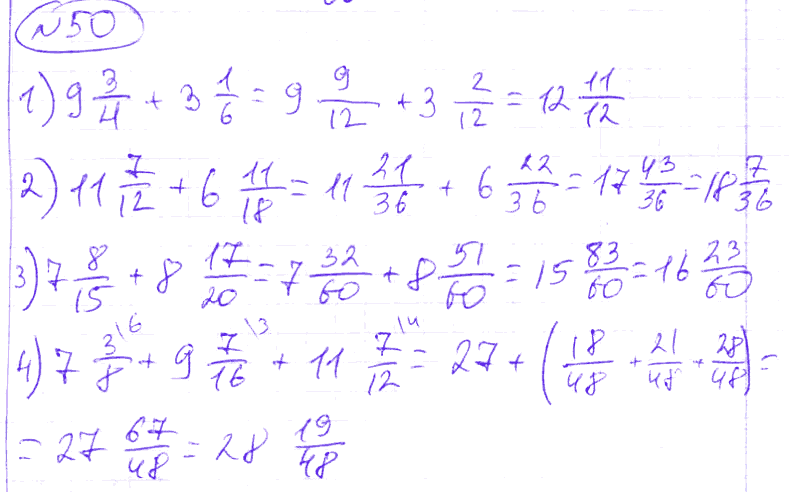 №50
1) 9 3/4 + 3 1/6 = 9 9/12 + 3 2/12 = 12 11/12
2) 11 7/12 + 6 11/18 = 11 21/36 + 6 22/36 = 17 43/36 = 18 7/36
3) 7 8/15 + 8 17/20 = 7 32/60 + 8 51/60 = 15 83/60 = 16 23/60
4) 7 3/8 \6 + 9 7/16 \3 + 11 7/12 \4 = 27 + (18/48 + 21/48 + 28/48) =
= 27 67/48 = 28 19/48